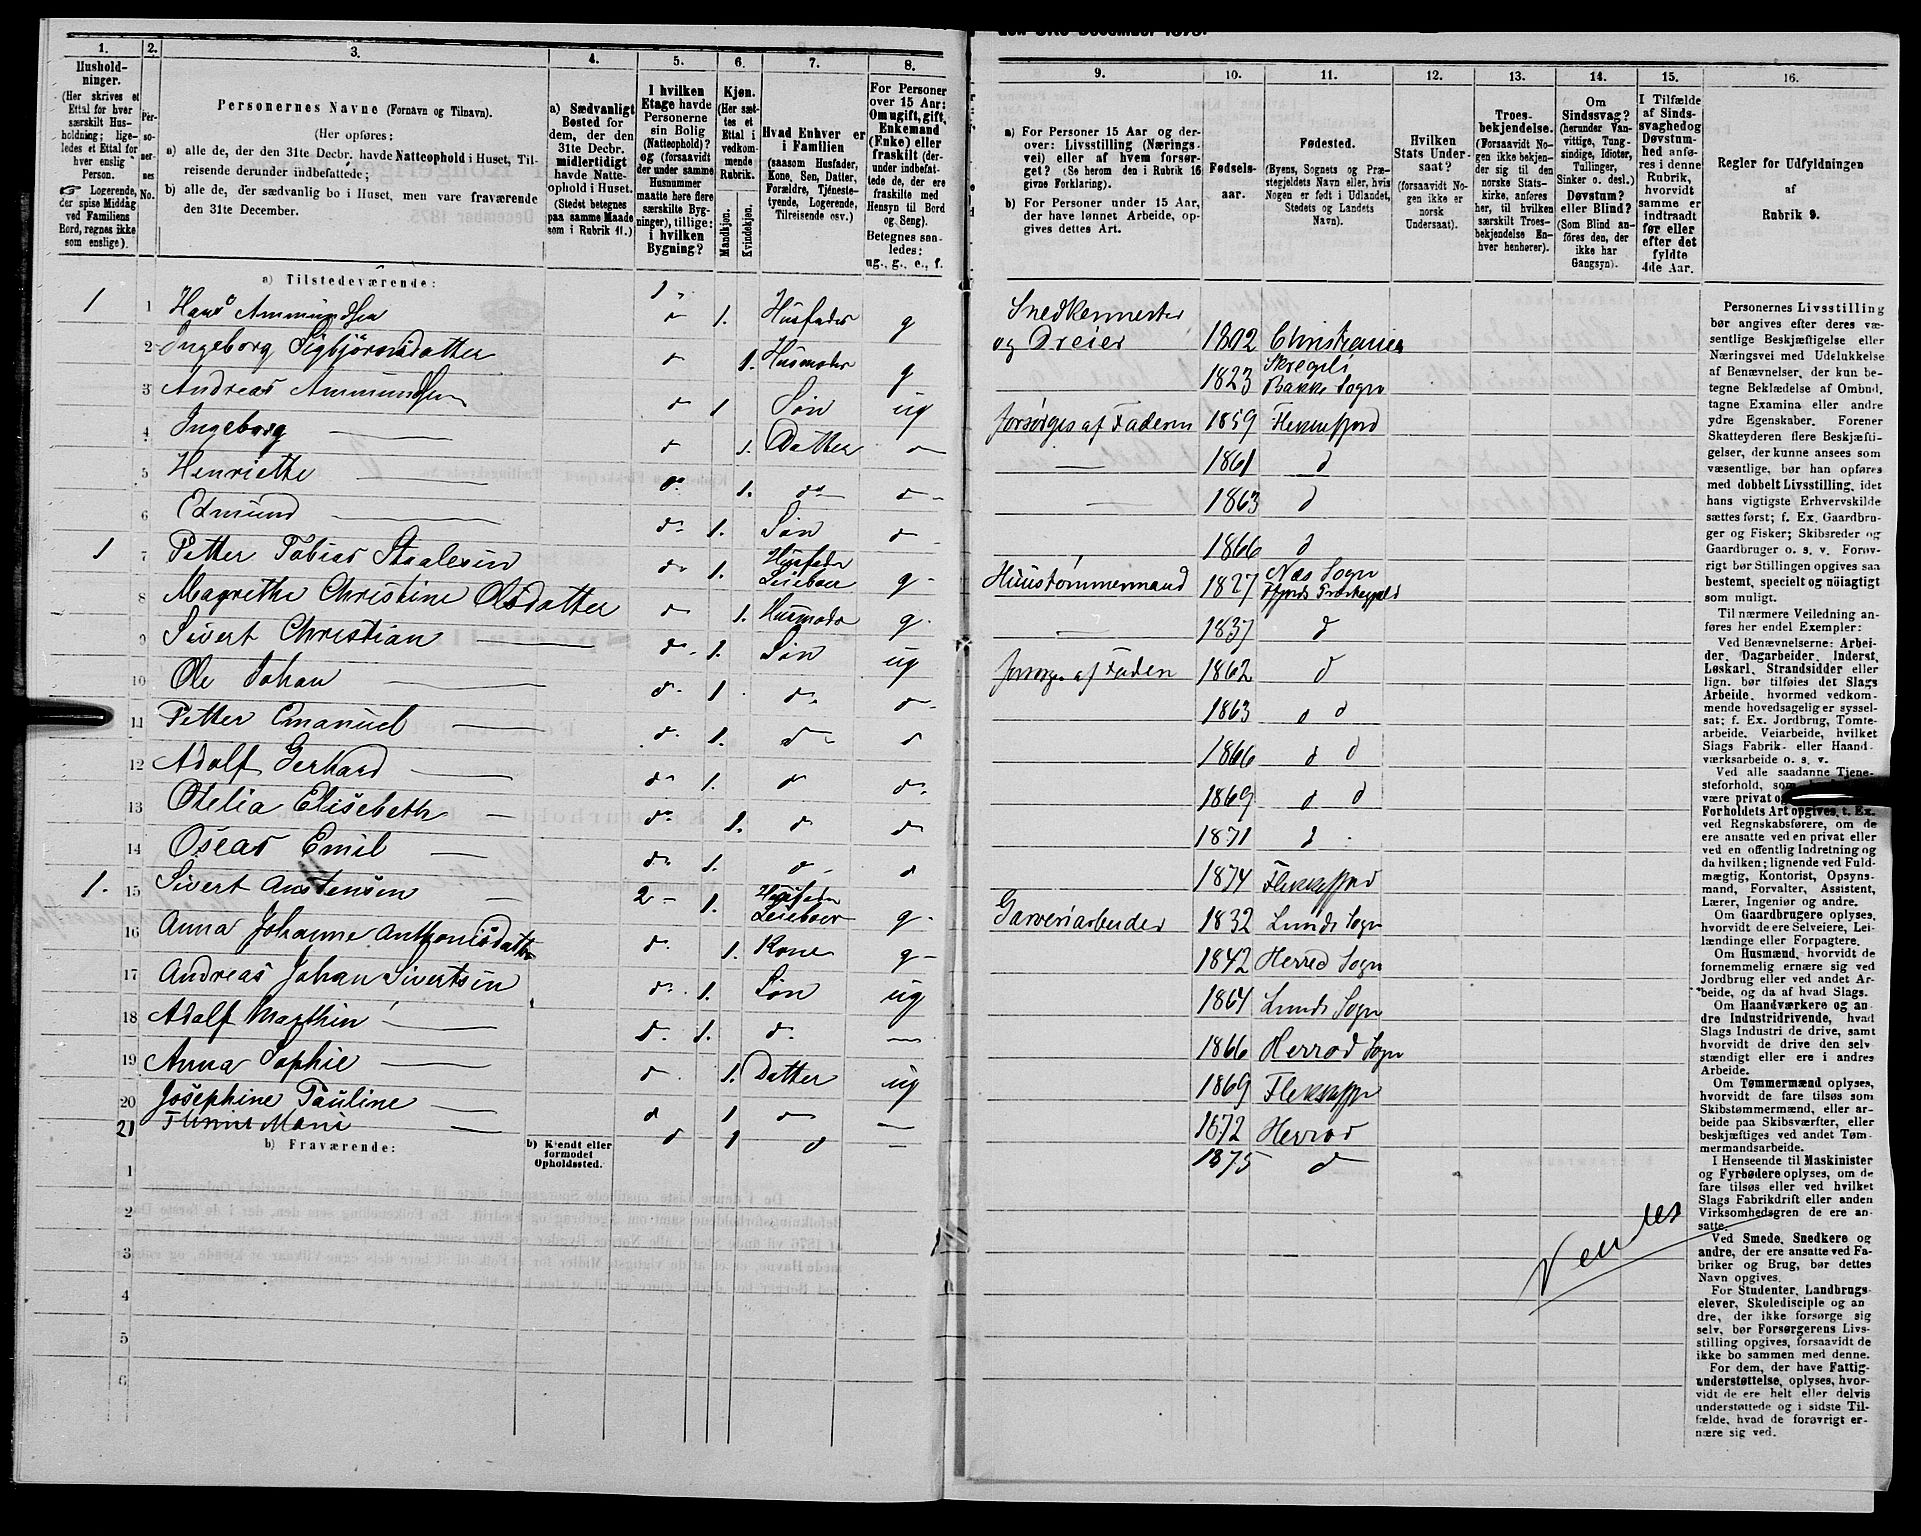 1. 2. 3. 4. 5. 6. 7. 8.
Hushold-
ninger.
(Her skrives et
Ettal for hver
særskilt Hus-
holdning; lige-
ledes et Ettal for
hver enslig
Person.
Logerende,
der spise Middag
ved Familiens
Bord, regnes ikke
som enslige).
Per-
so-
ner-
nes
No.
Personernes Navne (Fornavn og Tilnavn).
(Her opføres:
a) alle de, der den 31te Decbr. havde Natteophold i Huset, Til-
reisende derunder indbefattede;
b) alle de, der sædvanlig bo i Huset, men vare fraværende
den 31te December.
a) Sædvanligt
Bosted for
dem, der den
31te Decbr.
midlertidigt
havde Natte-
ophold i Huset.
(Stedet betegnes
paa samme Maade
som i Rubrik 11.)
I hvilken
Etage havde
Personerne
sin Bolig
(Natteophold)?
og (forsaavidt
der under samme
Husnummer
maatte høre flere
særskilte Byg-
ninger), tillige:
i hvilken
Bygning?
Kjøn.
(Her sæt-
tes et
Ettal i
vedkom-
mende
Rubrik.
Mandkjøn.
Kvindekjøn.
Hvad Enhver er
i Familien
(saasom Husfader,
Kone, Søn, Datter,
Forældre, Tjeneste-
tyende, Logerende,
Tilreisende osv.)
For Personer
over 15 Aar:
Om ugift, gift,
Enkemand
(Enke) eller
fraskilt (der-
under indbefat-
tede de, der ere
fraskilte med
Hensyn til Bord
og Seng).
Betegnes saa-
ledes:
ug., g., e., f.
a) Tilstedeværende:
1 1 Hans Ammundsen 1 " 1. Husfader g
2 Ingeborg Sigbjørnsdatter d 1. Husmoder g
3 Andreas Ammundsen d 1 Søn ug
4 Ingeborg — d 1. Datter d
5 Henriette — do 1. do d
6 Edmund — d 1. Søn d
1 7 Petter Tobias Staalesen d 1. Husfader Leieboer g
8 Magrethe Christine Olsdatter d 1. Husmoder g.
9 Sivert Christian — d 1. Søn ug
10 Ole Johan — d 1. d d
11 Petter Emanuel — d 1. d d
12 Adolf Gerhard — d 1. d d
13 Otelia Elisebeth — do 1. d d
14 Oscar Emil — d 1. d d
1. 15 Sivert Anstensen 2 - 1. Husfader Leieboer g
16 Anna Johanne Anthonisdatter d 1. Kone g
17 Andreas Johan Sivertsen d 1. Søn ug
18 Adolf Marthin — d 1. d —
19 Anna Sophie — d 1. Datter ug
20 Josephine Pauline — d 1 d —
21 — d 1 d —
b) Fraværende:
b) Kjendt eller
formodet
Opholdssted.
1
2
3
4
5
6
9. 10. 11. 12. 13. 14. 15. 16.
a) For Personer 15 Aar og der-
over: Livsstilling (Nærings-
vei) eller af hvem forsør-
get? (Se herom den i Rubrik 16
givne Forklaring).
b) For Personer under 15 Aar,
der have lønnet Arbeide, op-
gives dettes Art.
Fødsels-
aar.
Fødested.
(Byens, Sognets og Præ-
stegjeldets Navn eller, hvis
Nogen er født i Udlandet,
Stedets og Landets
Navn).
Hvilken
Stats Under-
saat?
(forsaavidt No-
gen ikke er
norsk
Undersaat).
Troes-
bekjendelse.
(Forsaavidt No-
gen ikke bekjen-
der sig til den
norske Stats-
kirke, anføres
her, til hvilken
særskilt Troes-
bekjendelse En-
hver henhører).
Om
Sindssvag?
(herunder Van-
vittige, Tung-
sindige, Idioter,
Tullinger,
Sinker o. desl.)
Døvstum?
eller Blind?
(Som Blind an-
føres den, der
ikke har
Gangsyn).
I Tilfælde
af Sinds-
svaghed og
Døvstum-
hed anfø-
res i denne
Rubrik,
hvorvidt
samme er
indtraadt
før eller
efter det
fyldte
4de Aar.
Regler for Udfyldningen
af
Rubrik 9.
Snedkermester
og Dreier 1802 Christiania
1823 Bakke Sogn
forsørges af Faderen 1859 Flekkefjord
— 1861 d
— 1863 d
1866 d
Huustømmermand 1827 Næs Sogn
— 1837 d
forsørges af Faderen 1862 d
1863 d d
1866 d d
1869 d d
1871 d
1874 Flekkefjord
Garveriarbeider 1832 Lunds Sogn
1842 Herred Sogn
1864 Lunds Sogn
1866 Herrod Sogn
1869
1872 Herrod
1875 d
Vendes
Personernes Livsstilling
bør angives efter deres væ-
sentlige Beskjæftigelse eller
Næringsvei med Udelukkelse
af Benævnelser, der kun be-
tegne Beklædelse af Ombud,
tagne Examina eller andre
ydre Egenskaber. Forener
Skatteyderen flere Beskjæfti-
gelser, der kunne ansees som
væsentlige, bør han opføres
med dobbelt Livsstilling, idet
hans vigtigste Erhvervskilde
sættes først; f. Ex. Gaardbru-
ger og Fisker; Skibsreder og
Gaardbruger o. s. v. Forøv-
rigt bør Stillingen opgives saa
bestemt, specielt og nøiagtigt
som muligt.
Til nærmere Veiledning an-
føres her endel Exempler:
Ved Benævnelserne: Arbei-
der, Dagarbeider, Inderst,
Løskarl, Strandsidder eller
lign. bør tilføies det Slags
Arbeide, hvormed vedkom-
mende hovedsagelig er syssel-
sat; f. Ex. Jordbrug, Tomte-
arbeide, Veiarbeide, hvilket
Slags Fabrik- eller Haand-
værksarbeide o. s. v.
Ved alle saadanne Tjene-
steforhold, som
være privat o
Forholdets Art opgives, t. Ex.
ved Regnskabsførere, om de
ere ansatte ved en privat eller
ved en offentlig Indretning og
da hvilken; lignende ved Fuld-
mægtig, Kontorist, Opsyns-
mand, Forvalter, Assistent,
Lærer, Ingeniør og andre.
Om Gaardbrugere oplyses,
hvorvidt de ere Selveiere, Lei-
lændinge eller Forpagtere.
Om Husmænd, hvorvidt de
fornemmelig ernære sig ved
Jordbrug eller ved andet Ar-
beide, og da af hvad Slags.
Om Haandværkere og an-
dre Industridrivende, hvad
Slags Industri de drive, samt
hvorvidt de drive den selv-
stændigt eller ere i andres
Arbeide.
Om Tømmermænd oplyses,
hvorvidt de fare tilsøs som
Skibstømmermænd, eller ar-
beide paa Skibsværfter, eller
beskjæftiges ved andet Tøm-
mermandsarbeide.
I Henseende til Maskinister
og Fyrbødere oplyses, om de
fare tilsøs eller ved hvilket
Slags Fabrikdrift eller anden
Virksomhedsgren de ere an-
satte.
Ved Smede, Snedkere og
andre, der ere ansatte ved Fa-
briker og Brug, bør dettes
Navn opgives.
For Studenter, Landbrugs-
elever, Skoledisciple og an-
dre, der ikke forsørge sig
selv, bør Forsørgerens Livs-
stilling opgives, forsaavidt de
ikke bo sammen med denne.
For dem, der have Fattig-
understøttelse, oplyses, hvor-
vidt de ere helt eller delvis
understøttede og i sidste Til-
fælde, hvad de forøvrigt er-
nære sig ved.